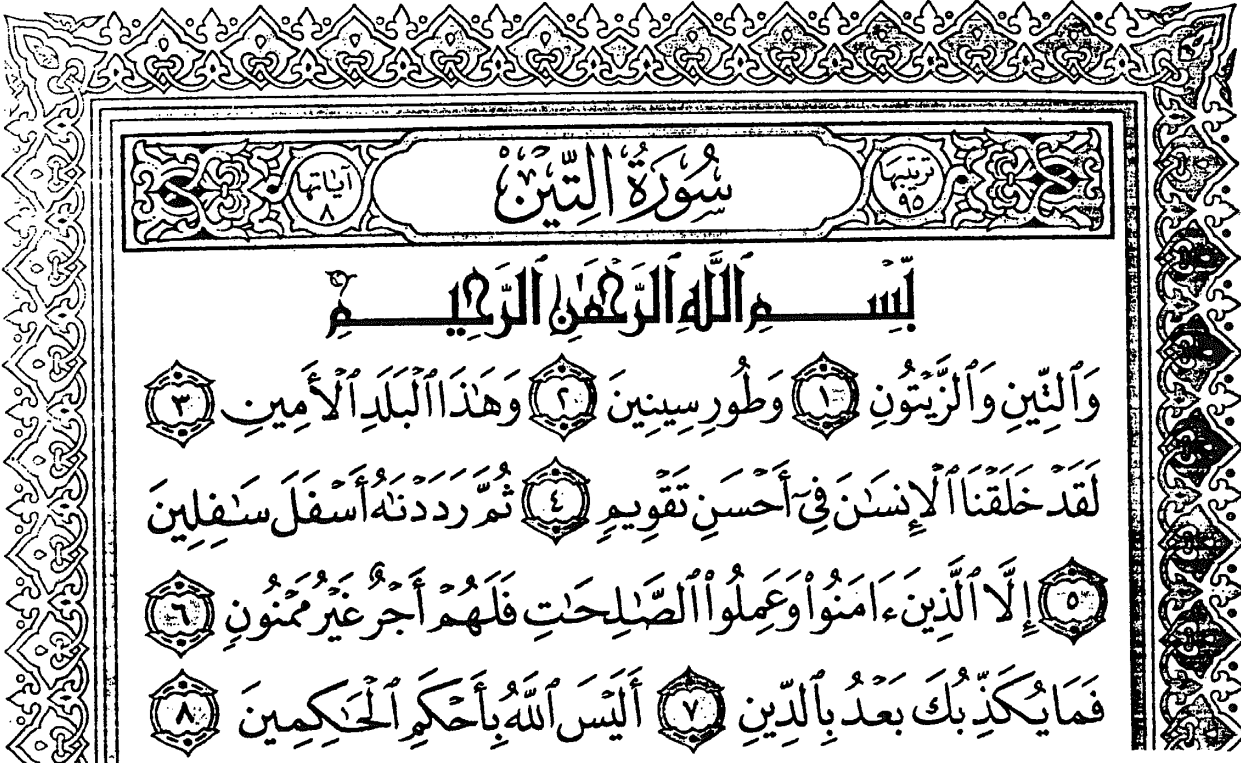 ترتيبها ٩٥ سُورَةُ التِّينِ آيَاتها ٨
بِّسْمِ ٱللَّهِ ٱلرَّحْمَٰنِ ٱلرَّحِيمِ
وَٱلتِّينِ وَٱلزَّيْتُونِ ١ وَطُورِ سِينِينَ ٢ وَهَٰذَا ٱلْبَلَدِ ٱلْأَمِينِ ٣
لَقَدْ خَلَقْنَا ٱلْإِنسَٰنَ فِىٓ أَحْسَنِ تَقْوِيمٍ ٤ ثُمَّ رَدَدْنَٰهُ أَسْفَلَ سَٰفِلِينَ
٥ إِلَّا ٱلَّذِينَ ءَامَنُوا۟ وَعَمِلُوا۟ ٱلصَّٰلِحَٰتِ فَلَهُمْ أَجْرٌ غَيْرُ مَمْنُونٍ ٦
فَمَا يُكَذِّبُكَ بَعْدُ بِٱلدِّينِ ٧ أَلَيْسَ ٱللَّهُ بِأَحْكَمِ ٱلْحَٰكِمِينَ ٨